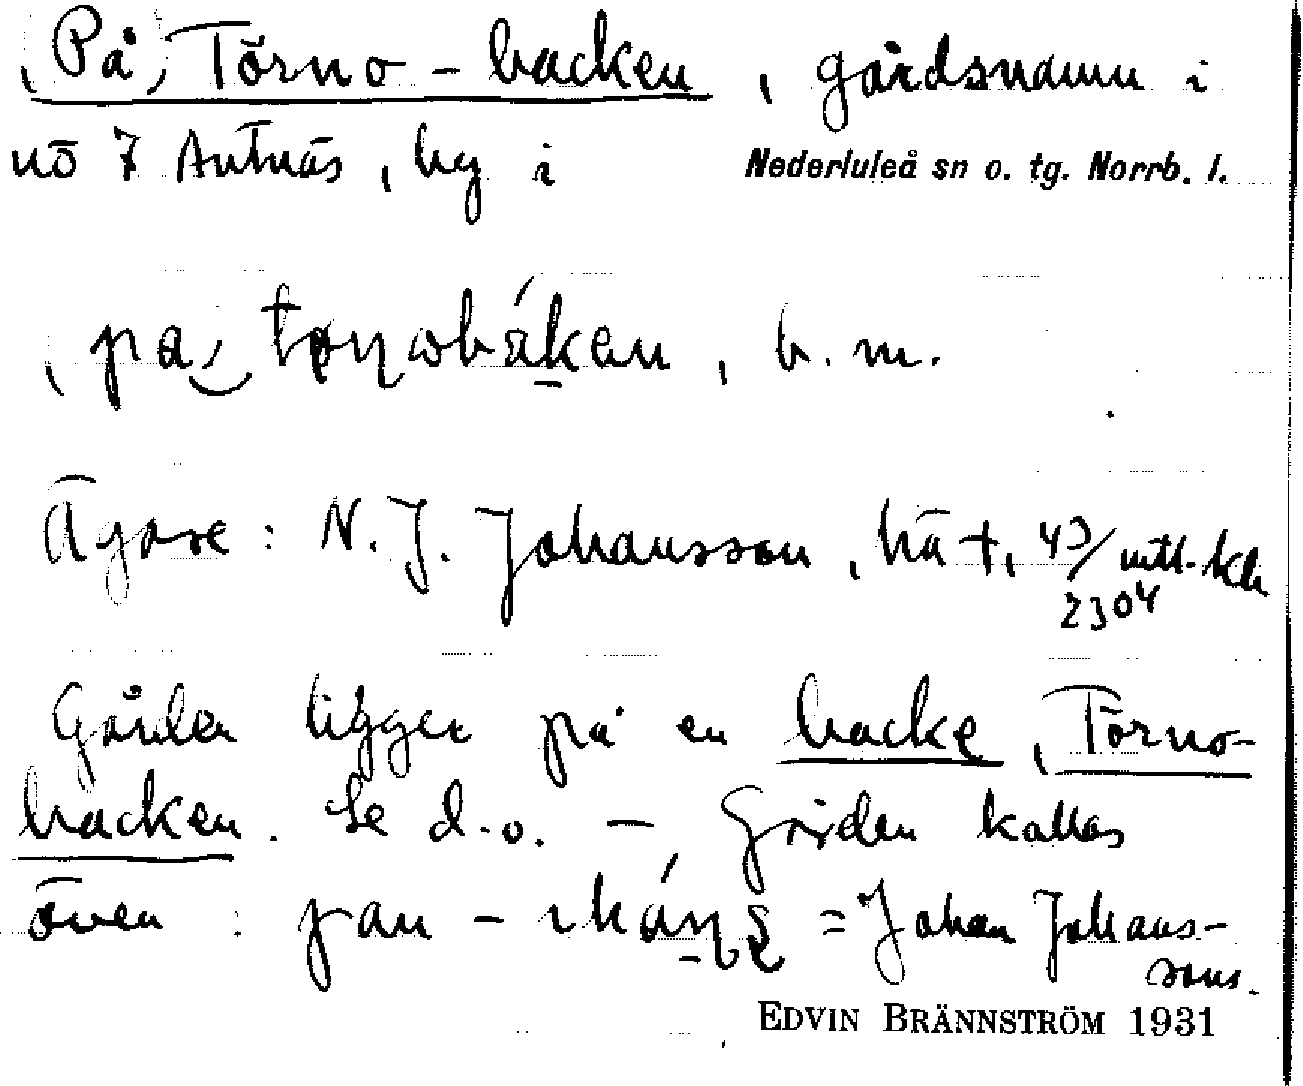 (På) Törno-backen, gårdsnamn i
nö 7 Antnäs, by i Nederluleå sn o. tg. Norrb. l.
, b. m.
Ägare: N. J. Johansson, 43/2304 mtl.
Gården ligger på en backe, Törno-
backen. Se d.o. — Gården kallas
även: = Johan Johans-
sons.
EDVIN BRÄNNSTRÖM 1931